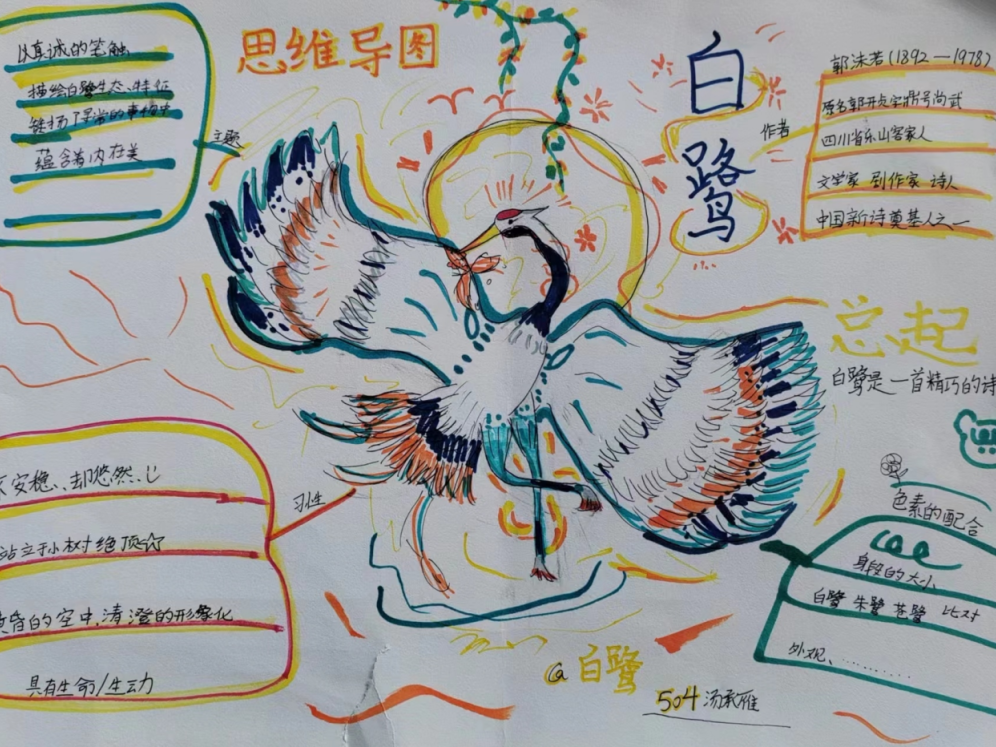 思维导图
白鹭
以真诚的笔触
描绘白鹭生态、特征
链揭了平常的事物中
蕴含着内在美
主题
作者
郭沫若(1892—1978)
原名郭开贞字鼎号尚武
四川省乐山客家人
文学家 剧作家 诗人
中国新诗奠基人之一
总起
白鹭是一首精巧的诗
习性
不安稳、却悠然
站立于小树绝顶☆
黄昏的空中,清澄的形象化
具有生命/生动
色素的配合
身段的大小
白鹭 朱鹭 苍鹭 比对
外观、………
@白鹭
504汤承雁